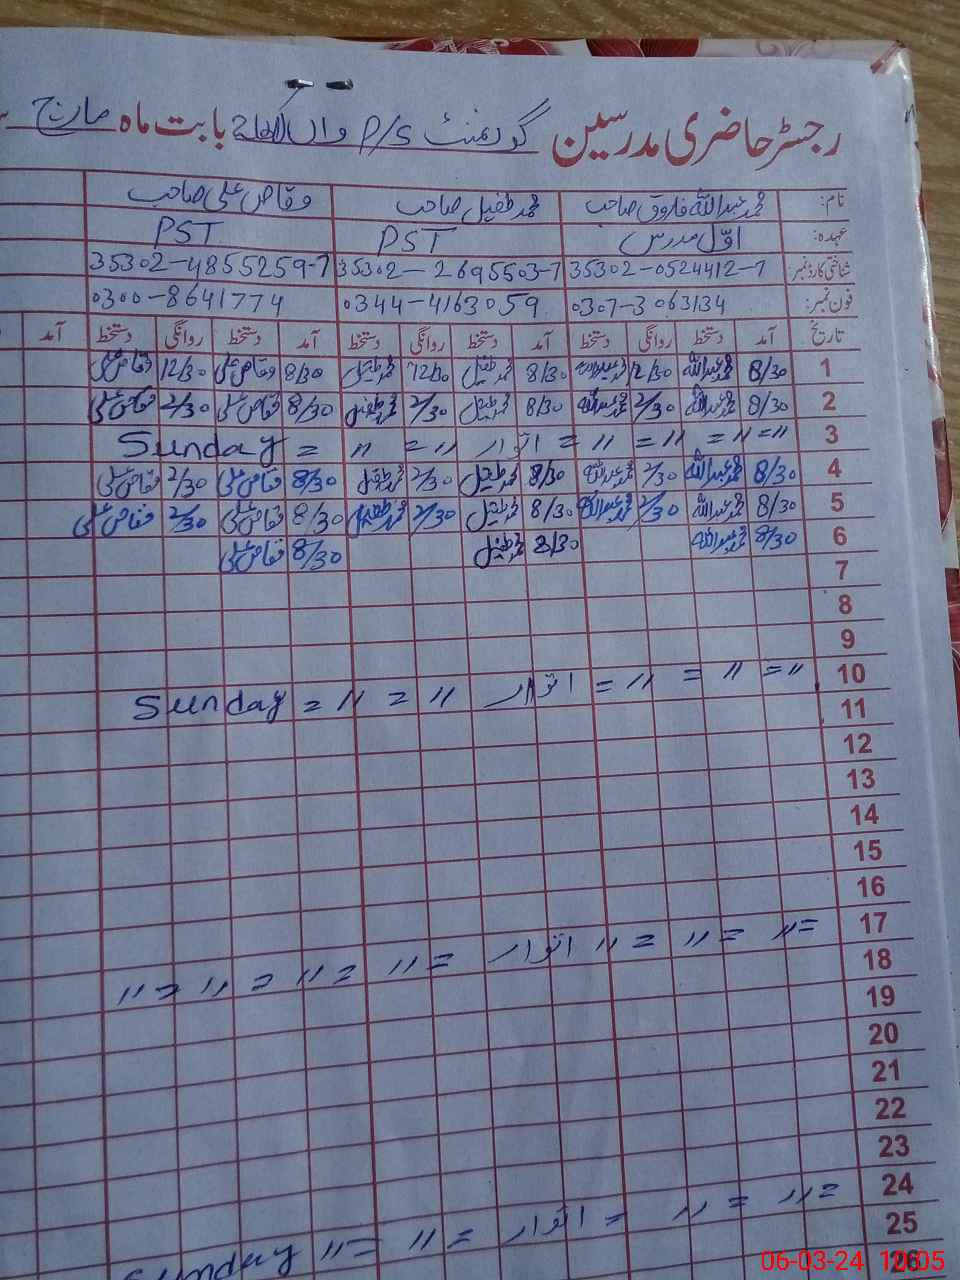 رجسٹر حاضری مدرسین گورنمنٹ P/S واں بابت ماہ مارچ
نام: محمد عبداللہ فاروق صاحب محمد طفیل صاحب وقاص علی صاحب
عہدہ: اوّل مدرس PST PST
شناختی کارڈ نمبر: 35302-0524412-7 35302-2695503-7 35302-4855259-7
فون نمبر: 0307-3063134 0344-4163059 0300-8641774
تاریخ آمد دستخط روانگی دستخط آمد دستخط روانگی دستخط آمد دستخط روانگی دستخط آمد
1 8/30 محمد عبداللہ 12/30 محمد عبداللہ 8/30 محمد طفیل 12/30 محمد طفیل 8/30 وقاص علی 12/30 وقاص علی
2 8/30 محمد عبداللہ 2/30 محمد عبداللہ 8/30 محمد طفیل 2/30 محمد طفیل 8/30 وقاص علی 2/30 وقاص علی
3 〃=〃=〃=〃= اتوار 〃=〃= Sunday
4 8/30 محمد عبداللہ 2/30 محمد عبداللہ 8/30 محمد طفیل 2/30 محمد طفیل 8/30 وقاص علی 2/30 وقاص علی
5 8/30 محمد عبداللہ 2/30 محمد عبداللہ 8/30 محمد طفیل 2/30 محمد طفیل 8/30 وقاص علی 2/30 وقاص علی
6 8/30 محمد عبداللہ 8/30 محمد طفیل 8/30 وقاص علی
7
8
9
10 〃=〃=〃= اتوار 〃=〃= Sunday
11
12
13
14
15
16
17 =〃=〃=〃 اتوار =〃=〃=〃=〃
18
19
20
21
22
23
24 =〃=〃= اتوار =〃=〃 Sunday
25
26
06-03-24 10:05